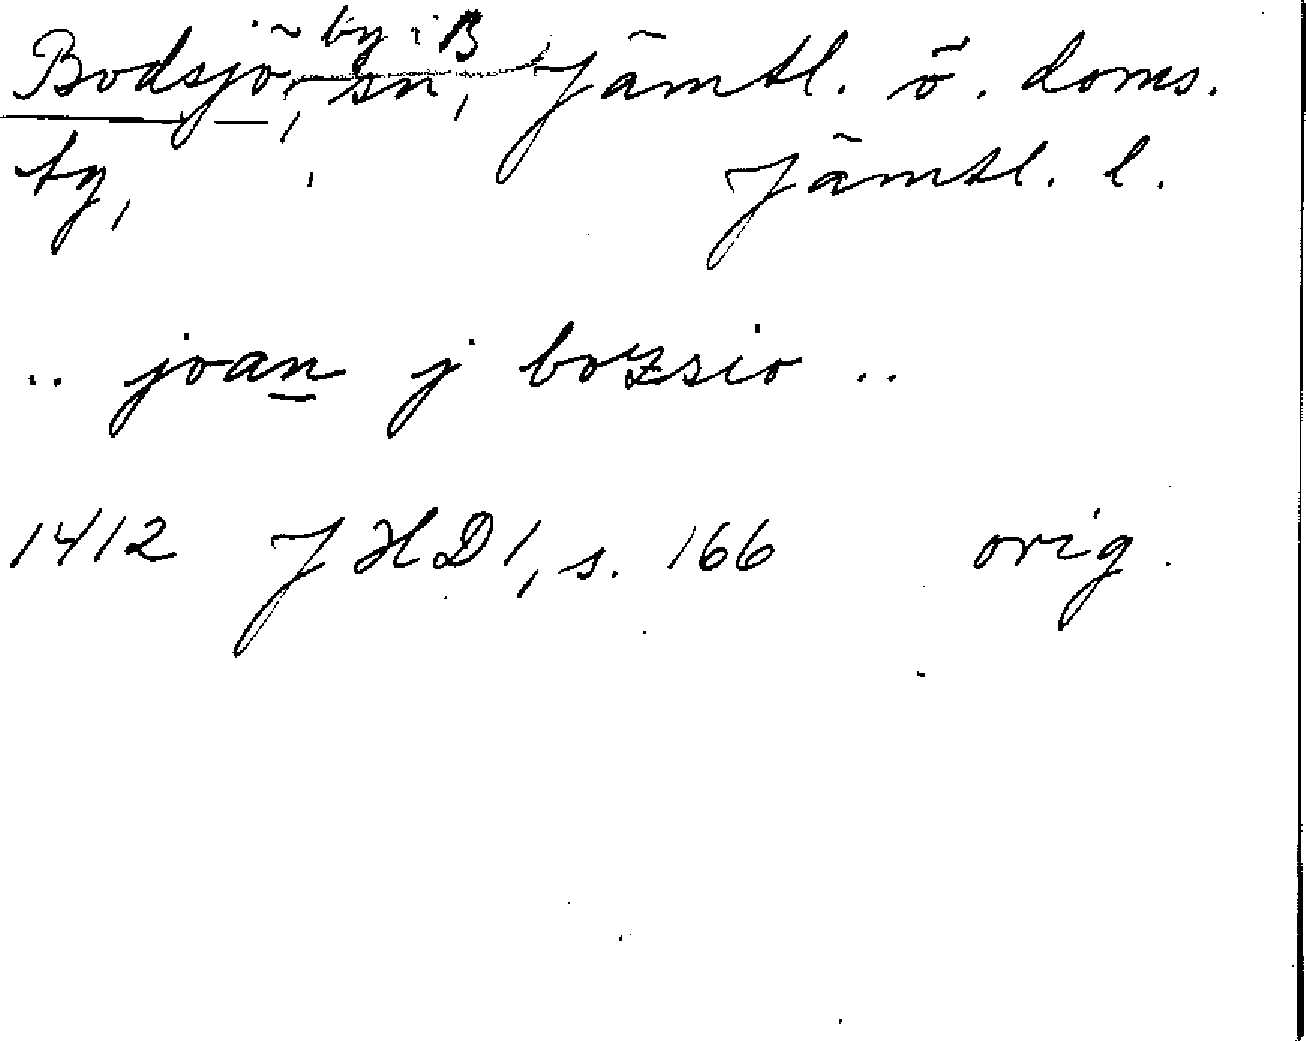 by i B
Bodsjö, sn, Jämtl. ö. doms.
tg, Jämtl. l.
.. joan j bozsio ..
1412 JHD1, s. 166 orig.